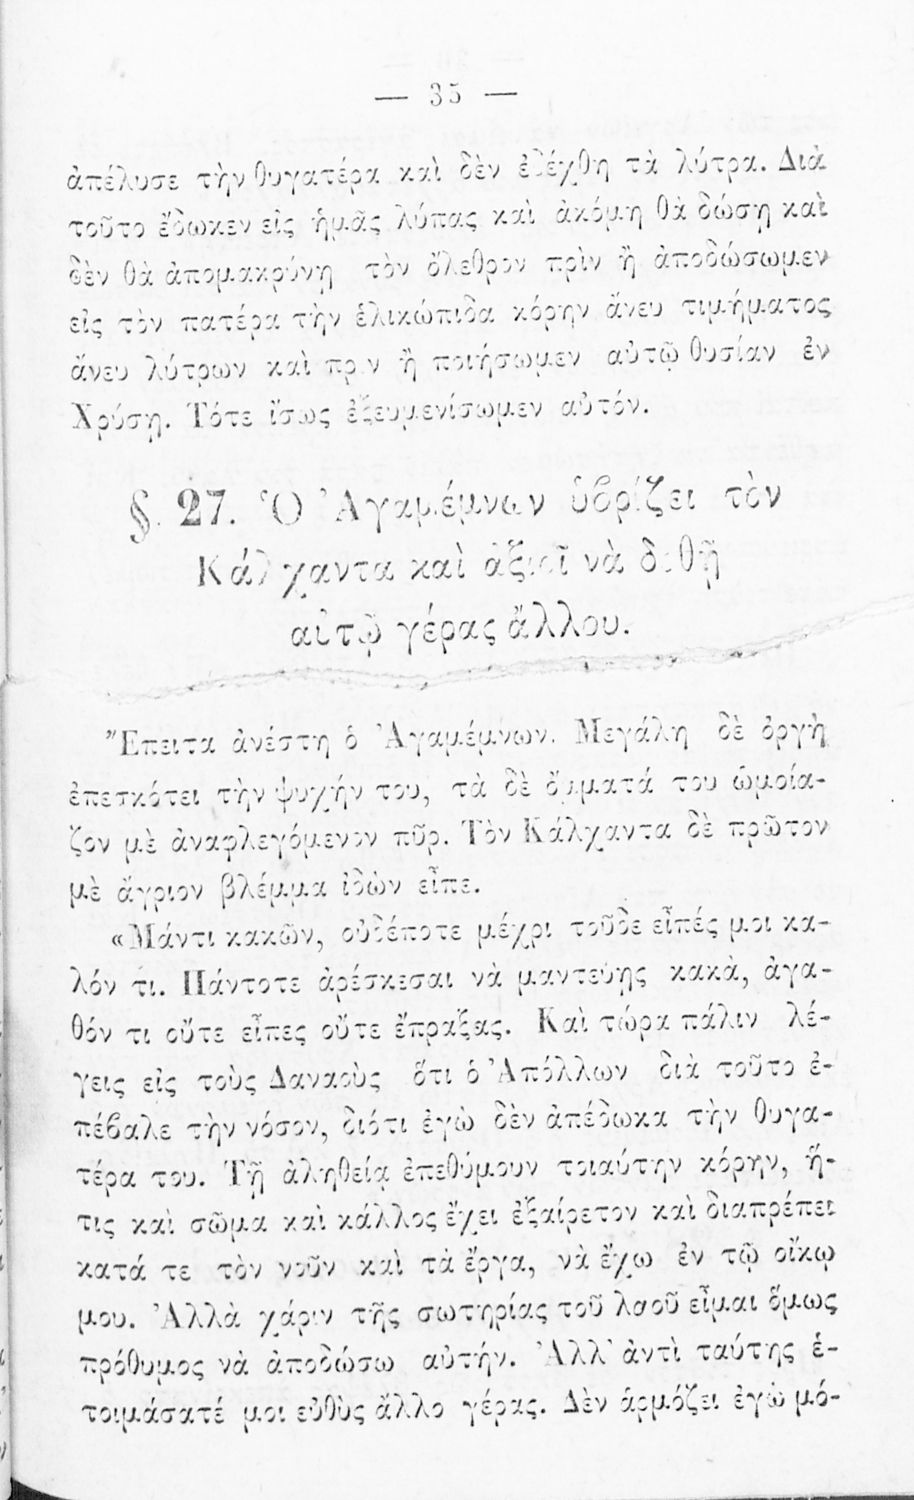 — 35 —
ἀπέλυσε τὴν θυγατέρα καὶ δὲν ἐδέχθη τὰ λύτρα. Διὰ
τοῦτο ἔδωκεν εἰς ἡμᾶς λύπας καὶ ἀκόμη θὰ δώσῃ καὶ
δὲν θὰ ἀπομακρύνῃ τὸν ὄλεθρον πρὶν ἢ ἀποδώσωμεν
εἰς τὸν πατέρα τὴν ἑλικώπιδα κόρην ἄνευ τιμήματος
ἄνευ λύτρων καὶ πρὶν ἢ ποιήσωμεν αὐτῷ θυσίαν ἐν
Χρύσῃ. Τότε ἴσως ἐξευμενίσωμεν αὐτόν.
§. 27. Ὁ Ἀγαμέμνων ὑβρίζει τὸν
Κάλχαντα καὶ ἀξιοῖ νὰ δοθῇ
αὐτῷ γέρας ἄλλου.
Ἔπειτα ἀνέστη ὁ Ἀγαμέμνων. Μεγάλη δὲ ὀργὴ
ἐπεσκότει τὴν ψυχήν του, τὰ δὲ ὄμματά του ὡμοία-
ζον μὲ ἀναφλεγόμενον πῦρ. Τὸν Κάλχαντα δὲ πρῶτον
μὲ ἄγριον βλέμμα ἰδὼν εἶπε.
«Μάντι κακῶν, οὐδέποτε μέχρι τοῦδε εἶπές μοι κα-
λόν τι. Πάντοτε ἀρέσκεσαι νὰ μαντεύῃς κακὰ, ἀγα-
θόν τι οὔτε εἶπες οὔτε ἔπραξας. Καὶ τώρα πάλιν λέ-
γεις εἰς τοὺς Δαναοὺς ὅτι ὁ Ἀπόλλων διὰ τοῦτο ἐ-
πέβαλε τὴν νόσον, διότι ἐγὼ δὲν ἀπέδωκα τὴν θυγα-
τέρα του. Τῇ ἀληθείᾳ ἐπεθύμουν τοιαύτην κόρην, ἥ-
τις καὶ σῶμα καὶ κάλλος ἔχει ἐξαίρετον καὶ διαπρέπει
κατά τε τὸν νοῦν καὶ τὰ ἔργα, νὰ ἔχω ἐν τῷ οἴκῳ
μου. Ἀλλὰ χάριν τῆς σωτηρίας τοῦ λαοῦ εἶμαι ὅμως
πρόθυμος νὰ ἀποδώσω αὐτήν. Ἀλλ' ἀντὶ ταύτης ἑ-
τοιμάσατέ μοι εὐθὺς ἄλλο γέρας. Δὲν ἁρμόζει ἐγὼ μό-